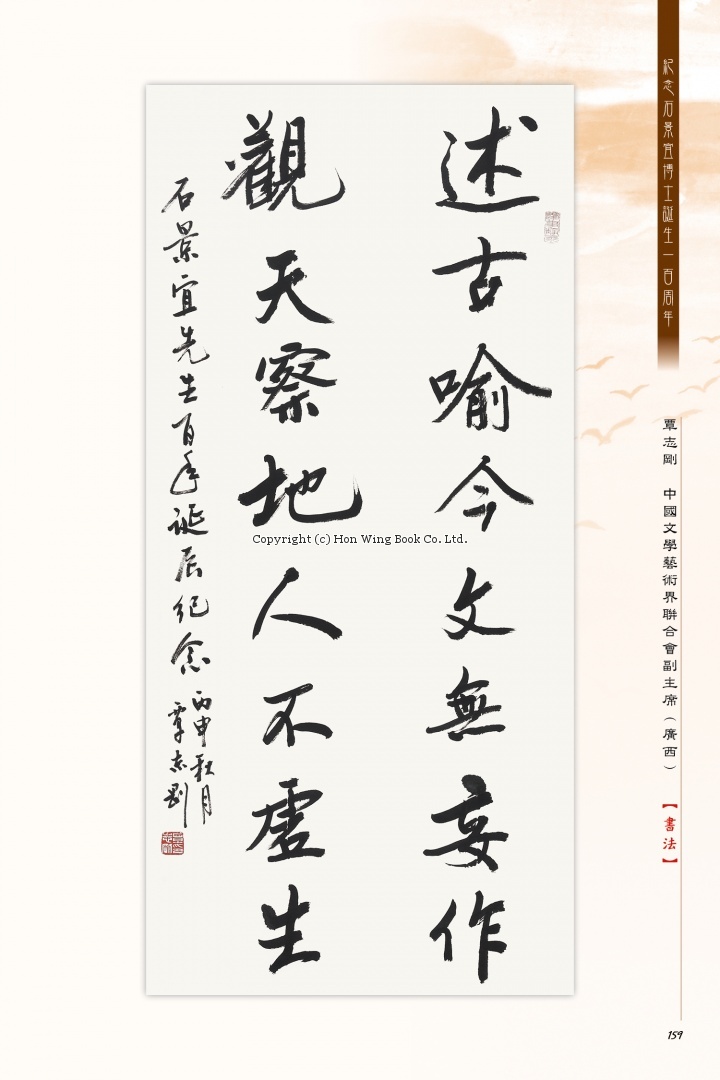 紀念石景宜博士誕生一百周年
述古喻今文無妄作
觀天察地人不虛生
石景宜先生百年誕辰紀念
丙申秋月
覃志剛
Copyright (c) Hon Wing Book Co. Ltd.
覃志剛 中國文學藝術界聯合會副主席（廣西）
【書法】
159